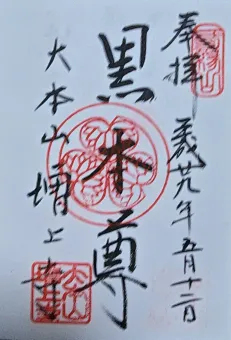 奉拝 義廿九年五月十二日
黒本尊
大本山増上寺